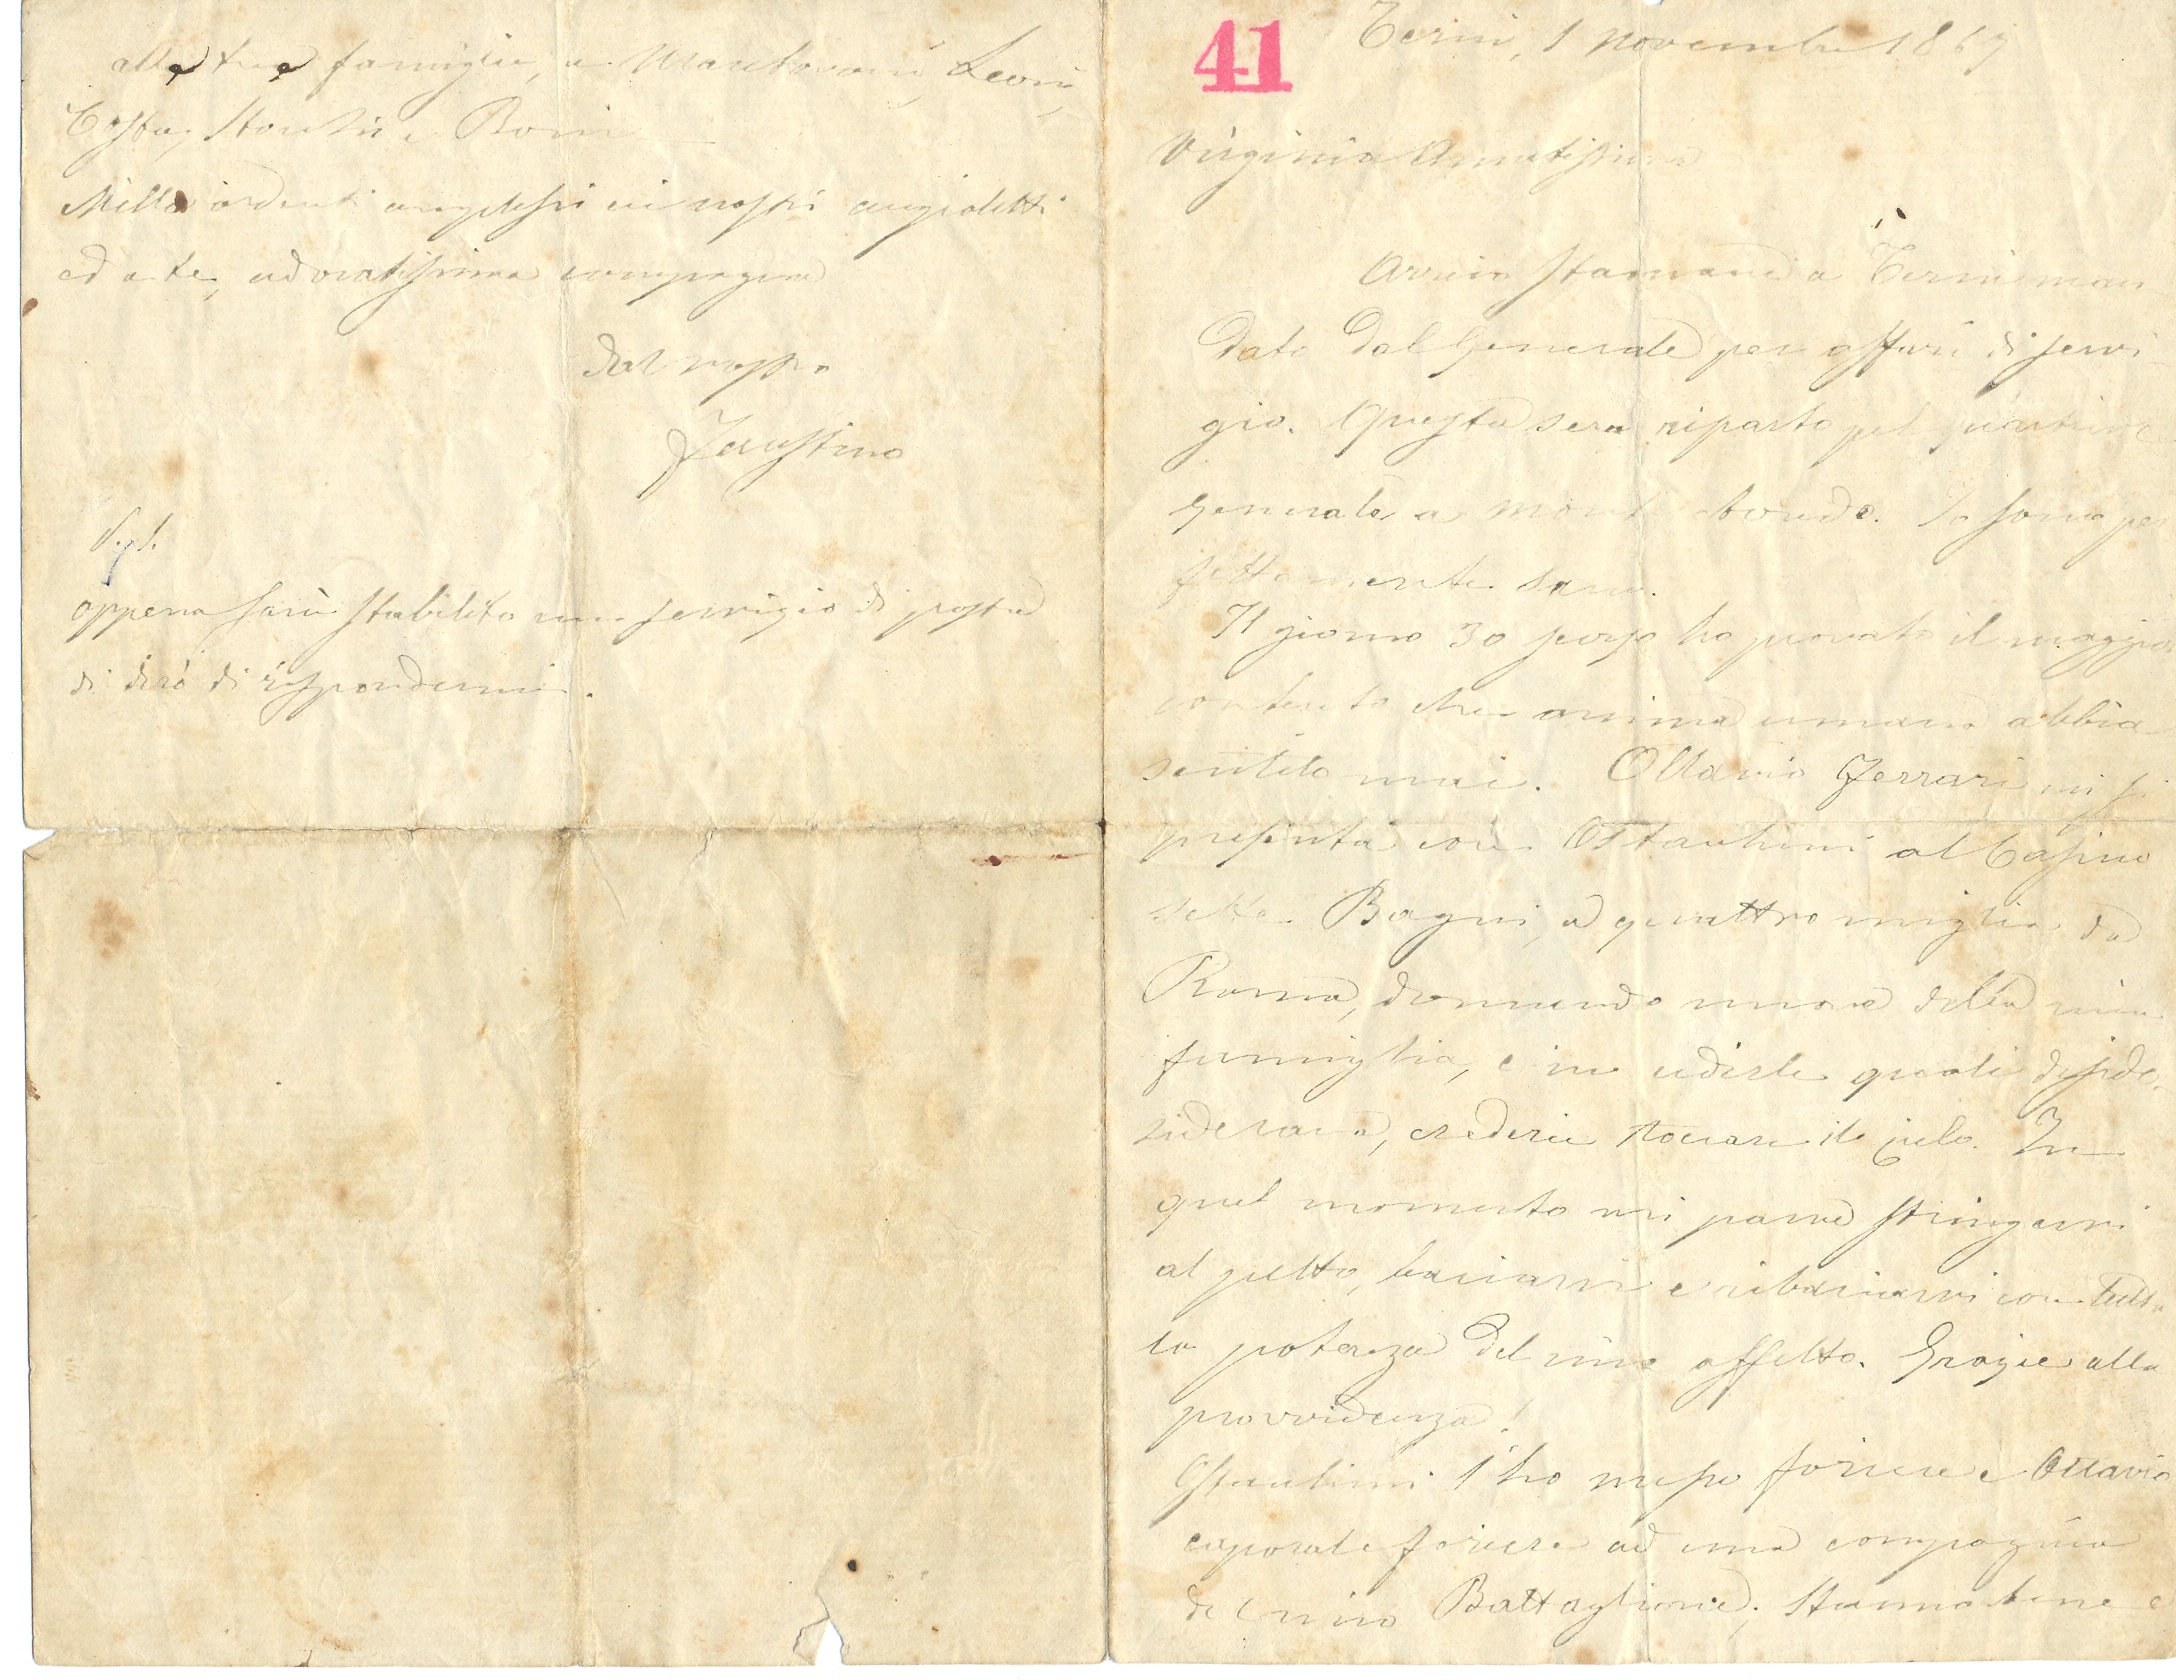 41
Terni, 1 novembre 1867
Virginia Amatissima
Arrivo stamane a Terni man
dato dal Generale per affari di servi
gio. Questa sera riparto pel quartiere
generale a Monte Rotondo. Io sono per
fettamente sano.
Il giorno 30 scorso ho provato il maggior
contento che anima umana abbia
sentito mai. Ottavio Ferrari mi si
presenta con Ostanlini al Casino
detto Bagni, a quattro miglia da
Roma, domando nuove della mia
famiglia, e in udirle quali desi
siderava, credevo toccare il cielo. In
quel momento mi parve stringervi
al petto, baciarvi e ribaciarvi con tutta
la potenza del mio affetto. Grazie alla
provvidenza!
l'ho messo foriere e Ottavio
caporale foriere ad una compagnia
del mio Battaglione; stanno bene e
alle tue famiglie, a Mantovani, Leoni,
Costa, e Boni
Mille ardenti amplessi ai nostri angioletti
ed a te, adoratissima compagna
dal vostro
Faustino
P.S.
appena sarà stabilito un servizio di posta
di dirò di rispondermi.